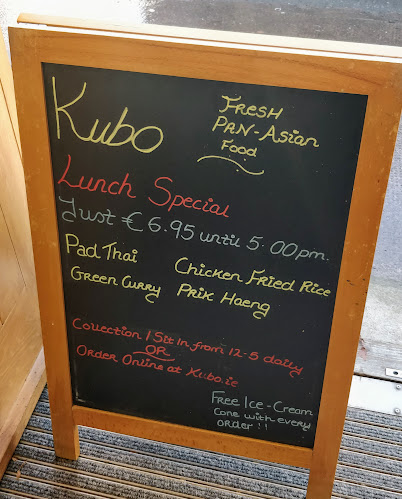 Kubo
Fresh
Pan-Asian
Food
Lunch Special
Just €6.95 until 5.00pm.
Pad Thai
Chicken Fried Rice
Green Curry
Prik Haeng
Collection / Sit In from 12-5 daily
OR
Order Online at Kubo.ie
Free Ice-Cream
Cone with every
order!!